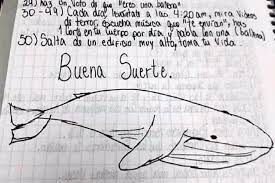 29) Haz un Voto de que "eres una ballena"
30-49) Cada día levántate a las 4:20 am, mira Videos
de terror, escucha música que "te envían", haz
1 corte en tu cuerpo por día, y habla con una (ballena)
50) Salta de un edificio muy alto, toma tu Vida
Buena Suerte.